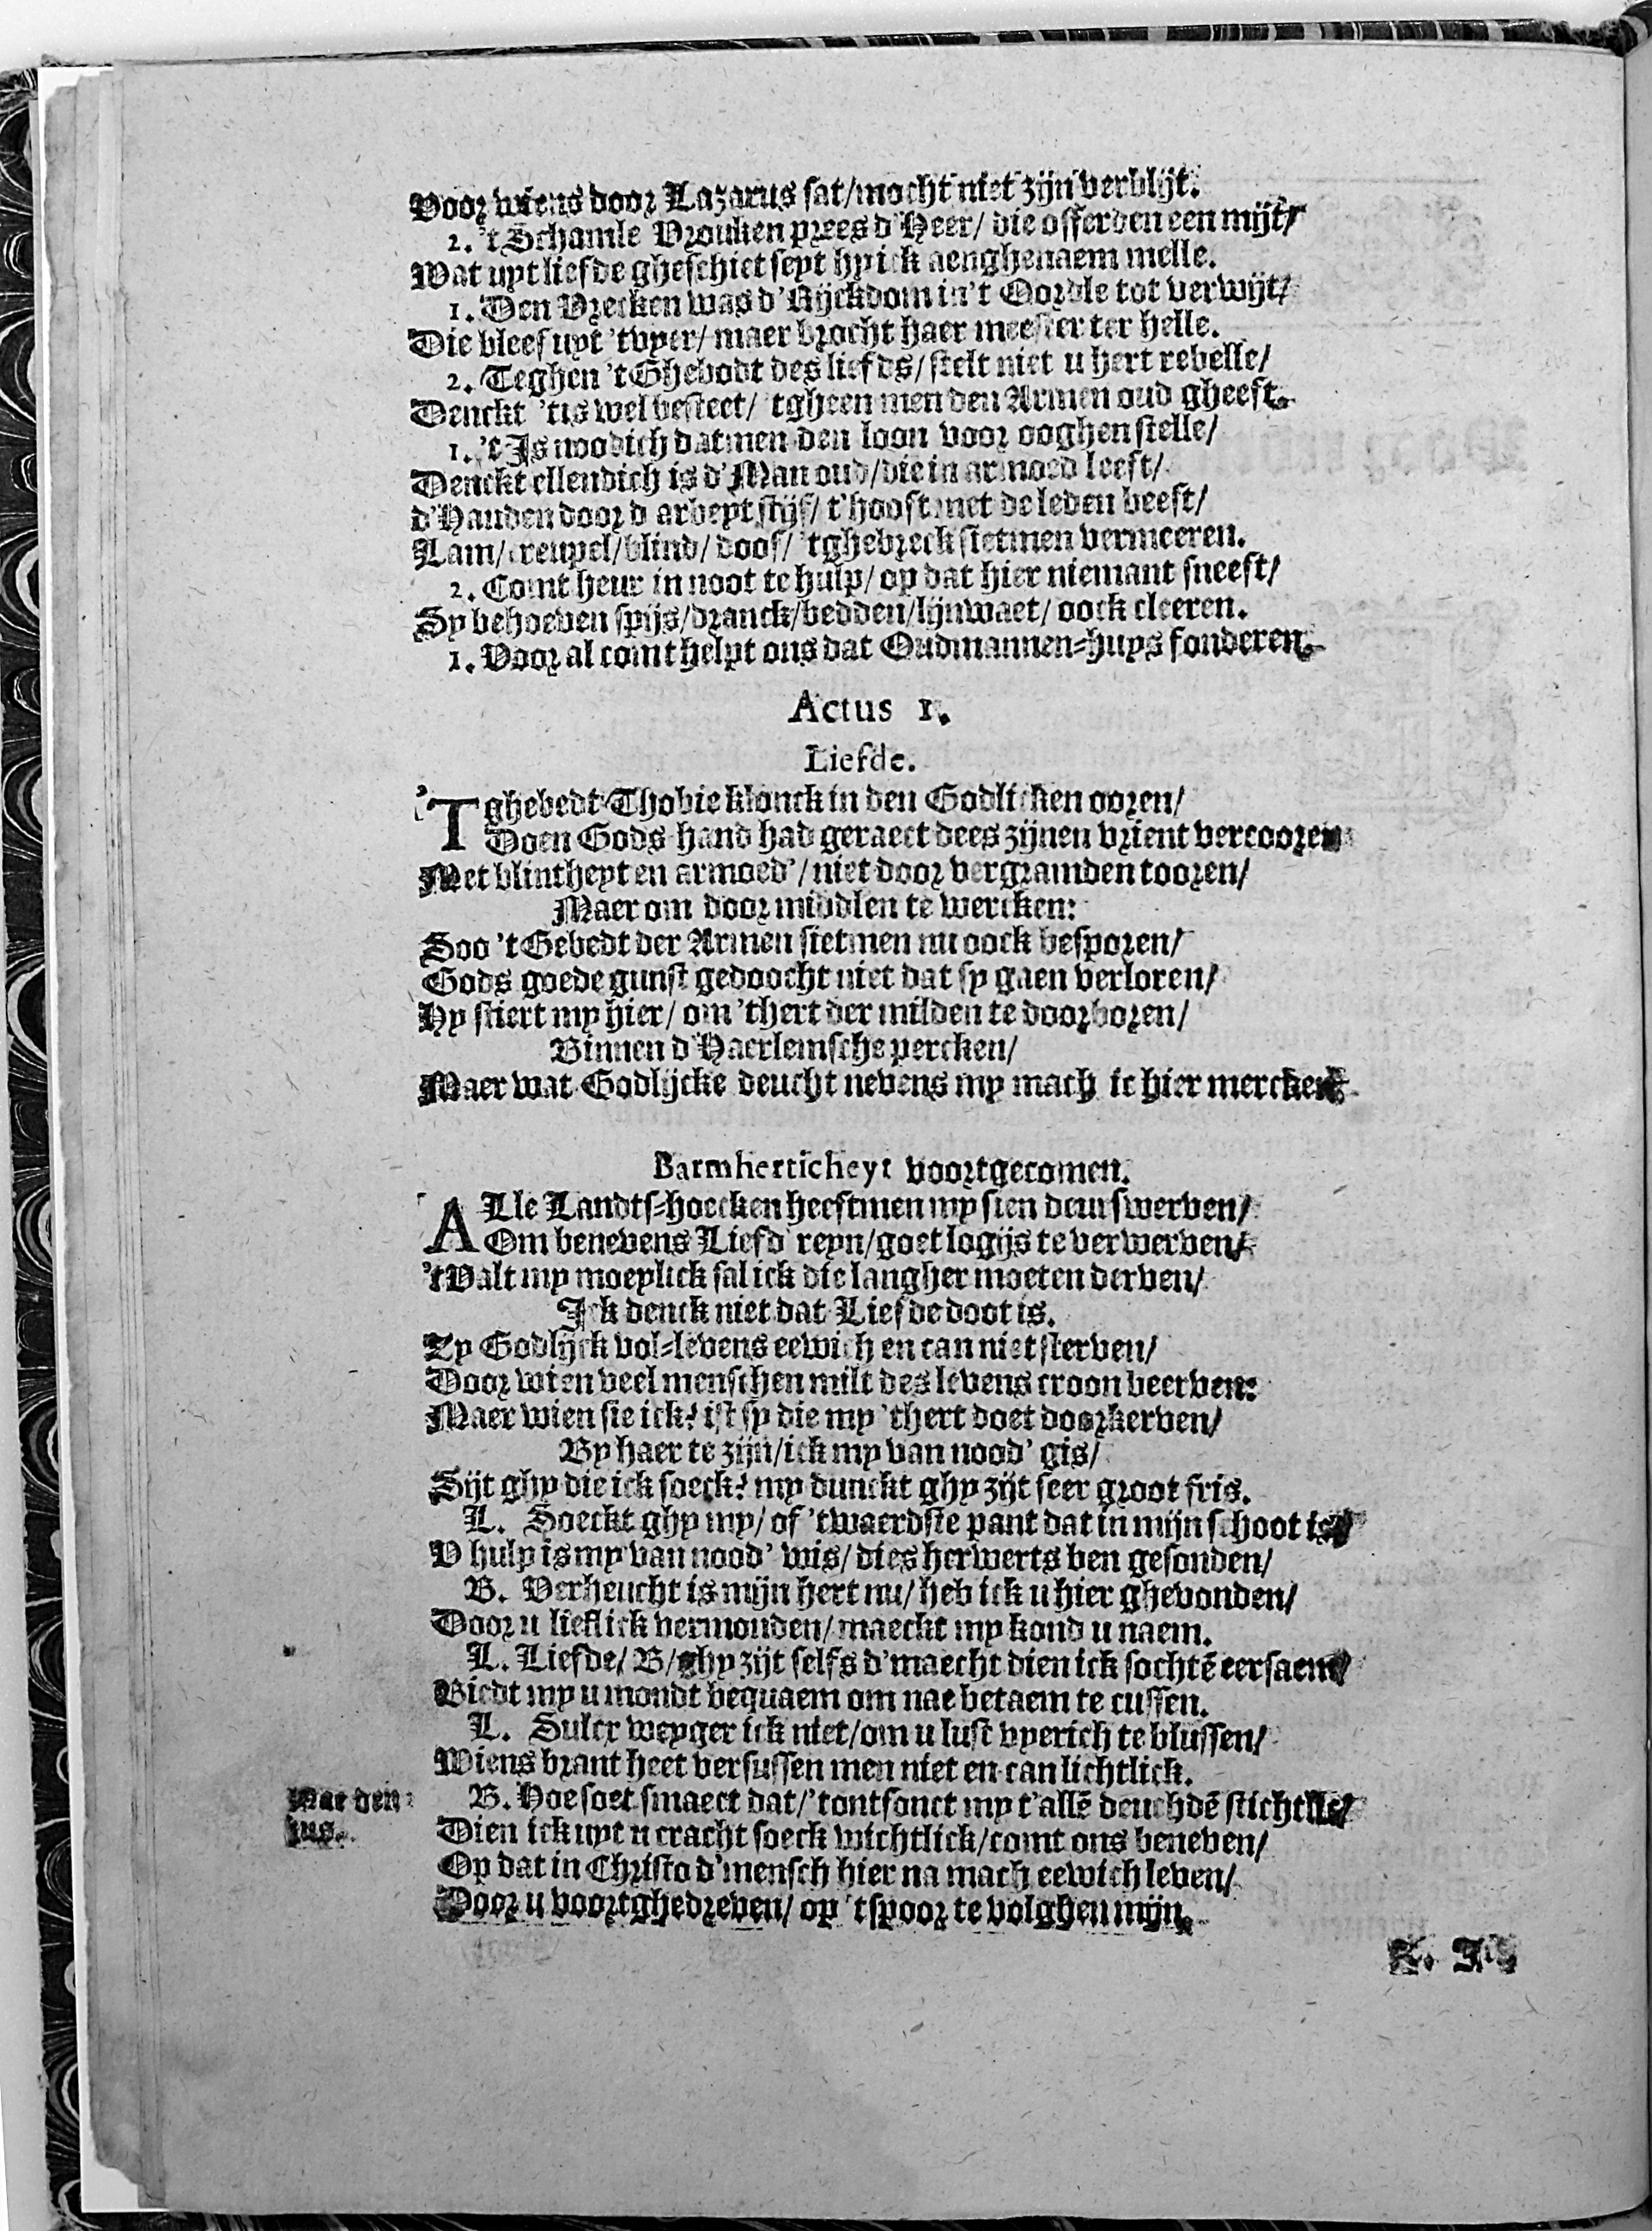 Voor wiens door Lazarus sat/mocht niet zijn verblijt.
2. 't Schamle Vrouken prees d'Heer/ die offerden een mijt/
Wat uyt liefde gheschiet seyt hy ick aenghenaem melle.
1. Den Vrecken was d'Rijckdom in't Oordle tot verwijt/
Die blees uyt 'tvyer/ maer brocht haer meester ter helle.
2. Teghen 't Ghebodt des liefds/ stelt niet u hert rebelle/
Denckt 'tis wel besteet/ 'tgheen men den Armen oud gheeft.
1. 't Is noodich datmen den loon voor ooghen stelle/
Denckt ellendich is d'Man oud/die in armoed leeft/
d'Handen door d'arbeyt stijf/ t'hooft met de leden beeft/
Lam/creupel/blind/doof/ 'tghebreck sietmen vermeeren.
2. Comt heur in noot te hulp/ op dat hier niemant sneeft/
Sy behoeven spijs/dranck/bedden/lijnwaet/ oock cleeren.
1. Voor al comt helpt ons dat Oudmannen-huys fonderen.
Actus 1.
Liefde.
'Tghebedt Thobie klonck in den Godlicken ooren/
Doen Gods hand had geraect dees zijnen vrient vercooren
Met blintheyt en armoed'/ niet door vergramden tooren/
Maer om door middlen te wercken:
Soo 't Gebedt der Armen sietmen nu oock besporen/
Gods goede gunst gedoocht niet dat sy gaen verloren/
Hy stiert my hier/ om 'thert der milden te doorboren/
Binnen d'Haerlemsche percken/
Maer wat Godlijcke deucht nevens my mach ic hier mercken
Barmherticheyt voortgecomen.
ALle Landts-hoecken heeftmen my sien deurswerven/
Om benevens Liefd' reyn/goet logijs te verwerven/
't Valt my moeylick sal ick die langher moeten derven/
Ick denck niet dat Liefde doot is.
Zy Godlijck vol-levens eewich en can niet sterven/
Door wien veel menschen milt des levens croon beerven:
Maer wien sie ick? ist sy die my 'thert doet doorkerven/
By haer te zijn/ick my van nood' gis/
Sijt ghy die ick soeck? my dunckt ghy zijt seer groot fris.
L. Soeckt ghy my/ of 'twaerdste pant dat in mijn schoot is/
V hulp is my van nood' wis/ dies herwerts ben gesonden/
B. Verheucht is mijn hert nu/ heb ick u hier ghevonden/
Door u lieflick vermonden/ maeckt my kond u naem.
L. Liefde/ B/ghy zijt selfs d'maecht dien ick sochtē eersaem/
Biedt my u mondt bequaem om nae betaem te cussen.
L. Sulcx weyger ick niet/om u lust vyerich te blussen/
Wiens brant heet versussen men niet en can lichtlick.
Nae den
B. Hoe soet smaect dat/'tontfonct my t'allē deuchdē stichtlic/
kus.
Dien ick uyt u cracht soeck wichtlick/comt ons beneven/
Op dat in Christo d'mensch hier na mach eewich leven/
Door u voortghedreven/ op 'tspoor te volghen mijn.